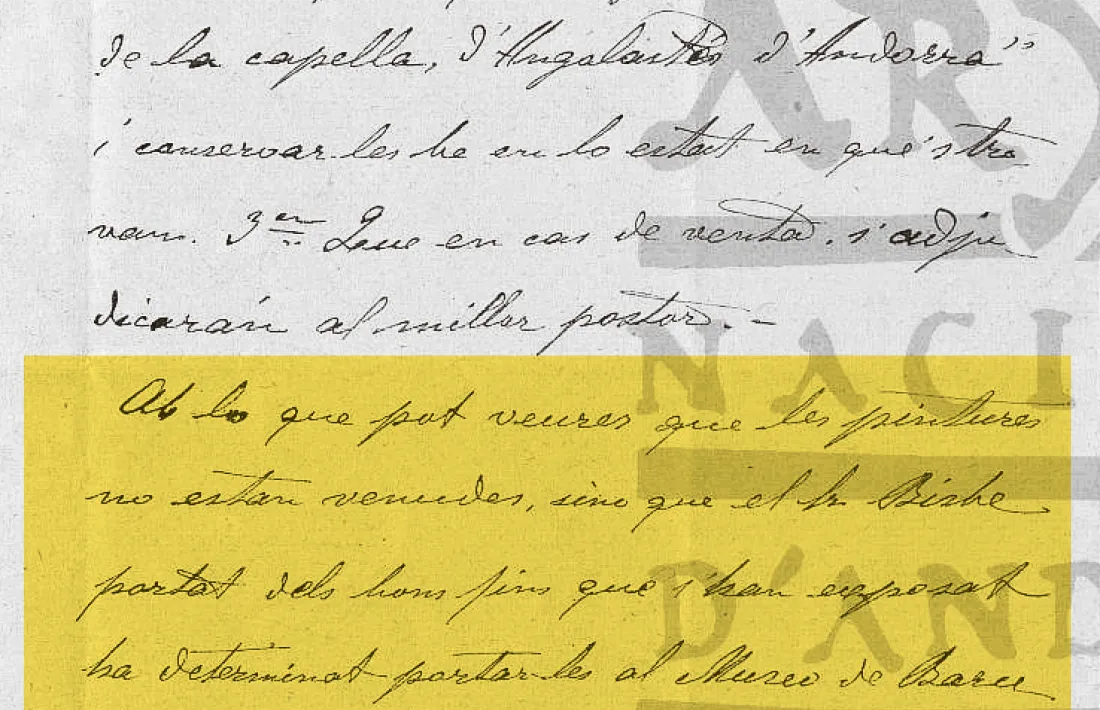 de la capella, d'Angolastés d'Andorra"
i conservarles be en lo estat en qué's tro
van. 3er Que en cas de venta. s'adju
dicarán al millor postor. -
Ab lo que pot veures que les pintures
no estan venudes, sino que el Sr Bisbe
portat dels bons fins que s'han exposat
ha determinat portar-les al Museo de Barce
ARX
NACI
D'AND